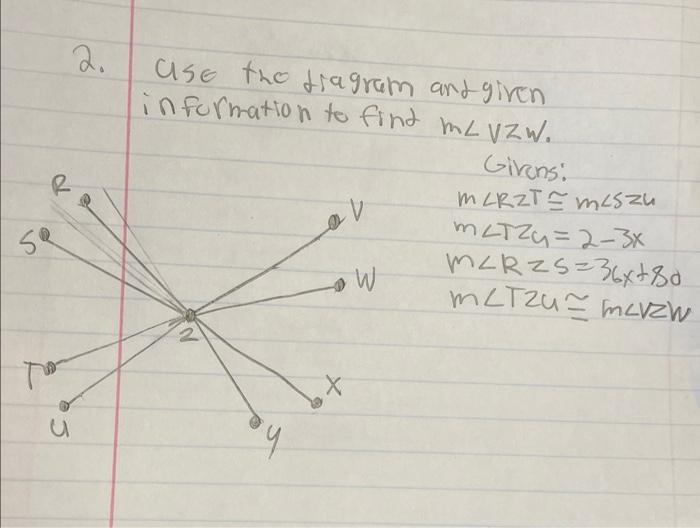 2. use the diagram and given
information to find m∠VZW.
Givens:
m∠RZT ≅ m∠SZU
m∠TZU = 2-3x
m∠RZS = 36x+80
m∠TZU ≅ m∠VZW
R
V
S
W
Z
T
X
U
y